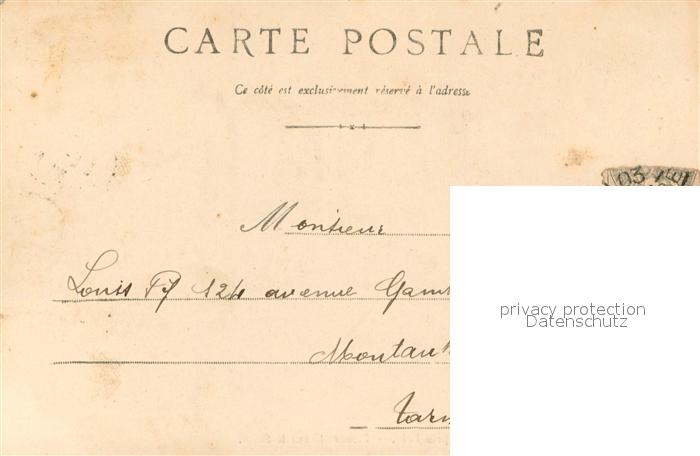 CARTE POSTALE
Ce côté est exclusivement réservé à l'adresse
03
Monsieur
Louis Py 124 avenue Gam
Montau
Tarn
privacy protection
Datenschutz